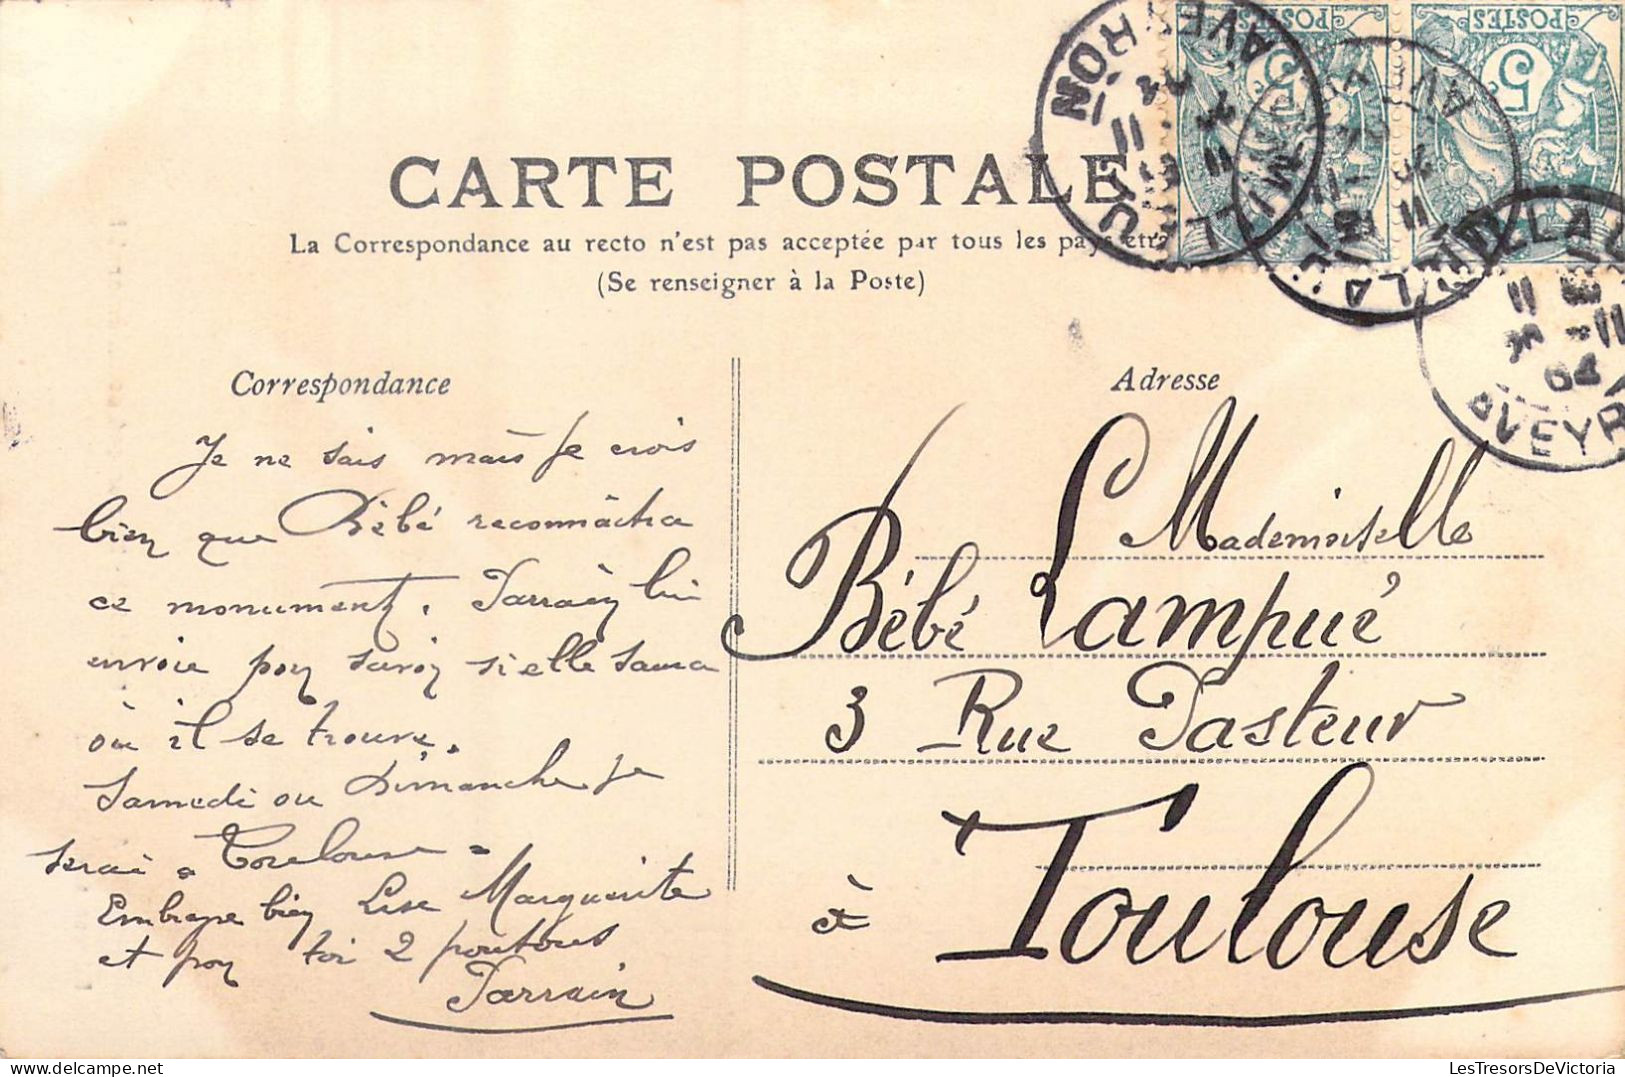 CARTE POSTALE
La Correspondance au recto n'est pas acceptée par tous les pays étra
(Se renseigner à la Poste)
POSTES
5c
POSTES
5c
MILLAU
AVEYRON
11
MILLAU
AVEYRON
11
MILLAU
11
04
AVEYR
Correspondance
Je ne sais mais je crois
bien que Bébé reconnaîtra
ce monument. Parrain lui
envoie pour savoir si elle saura
où il se trouve.
Samedi ou Dimanche je
serai à Toulouse.
Embrasse bien Lise Marguerite
et pour toi 2 poutous
Parrain
Adresse
Mademoiselle
Bébé Lampué
3 Rue Pasteur
à Toulouse
LesTresorsDeVictoria